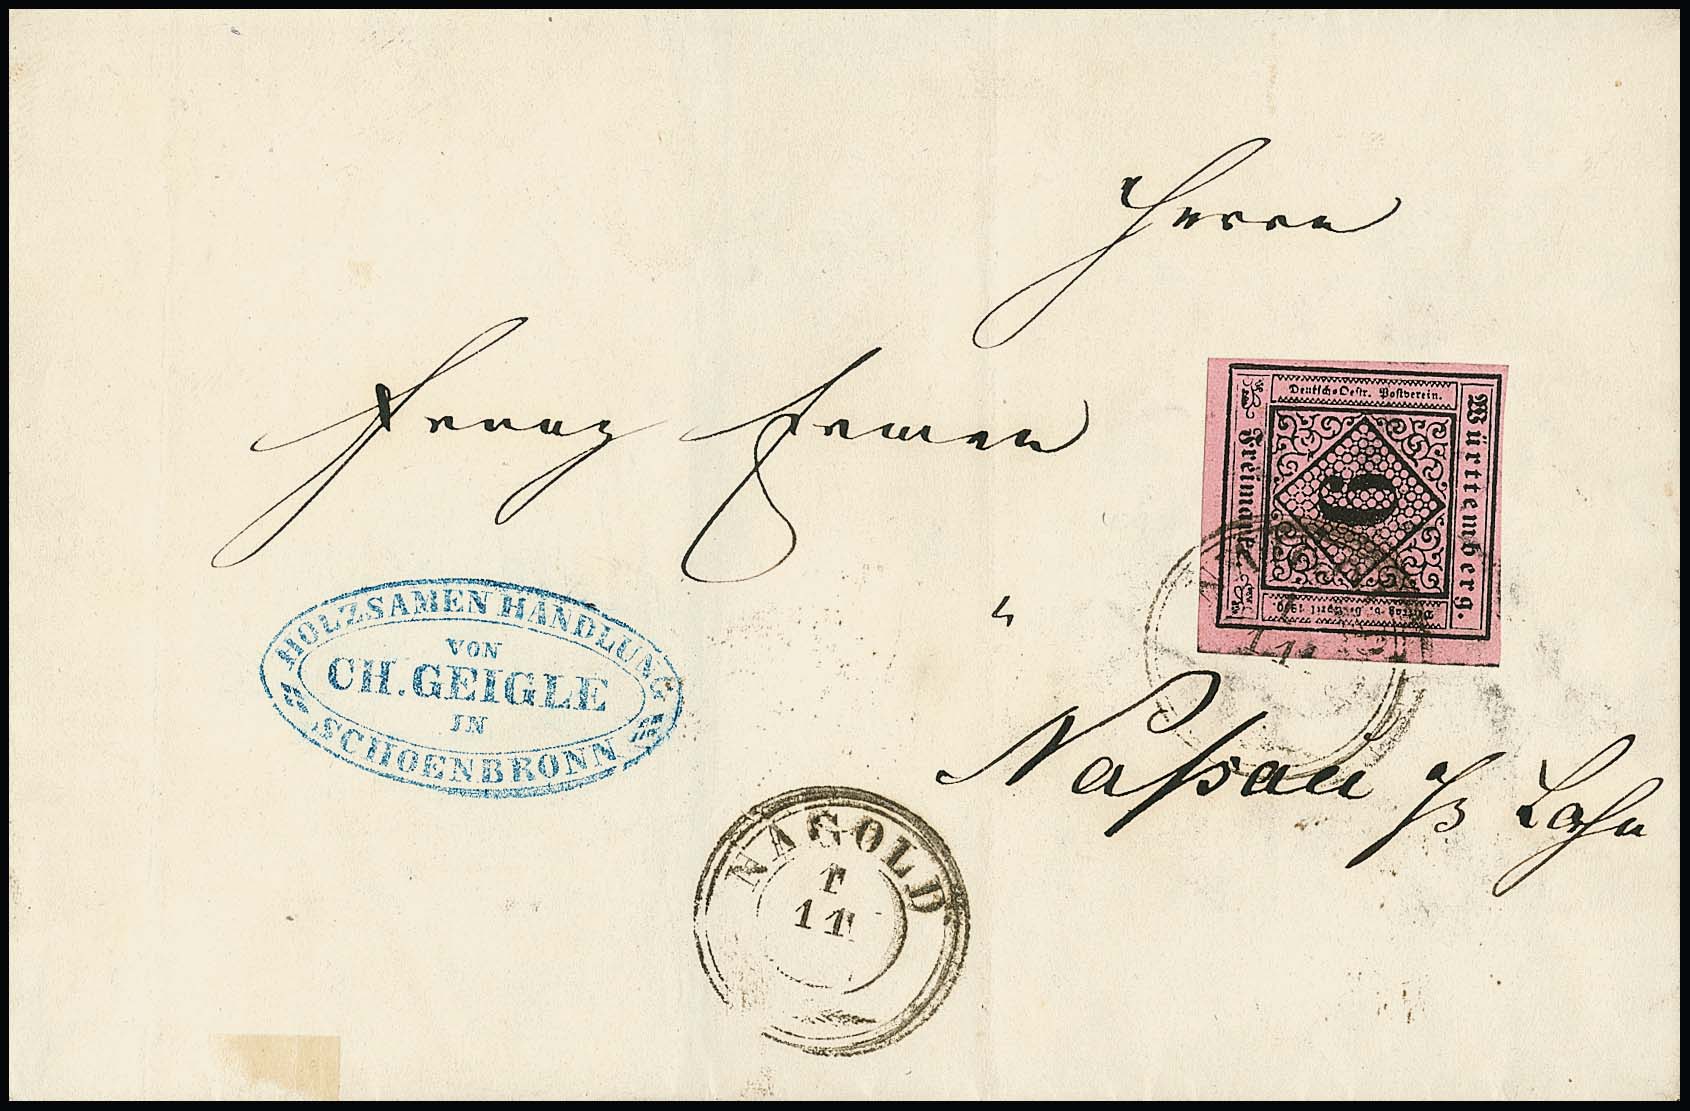 Herrn
"
Nassau a/d Lahn
HOLZSAMEN HANDLUNG
VON
CH. GEIGLE
IN
SCHOENBRONN
NAGOLD
1
11
Deutsch-Oestr. Postverein.
Württemberg.
Freimarke
6